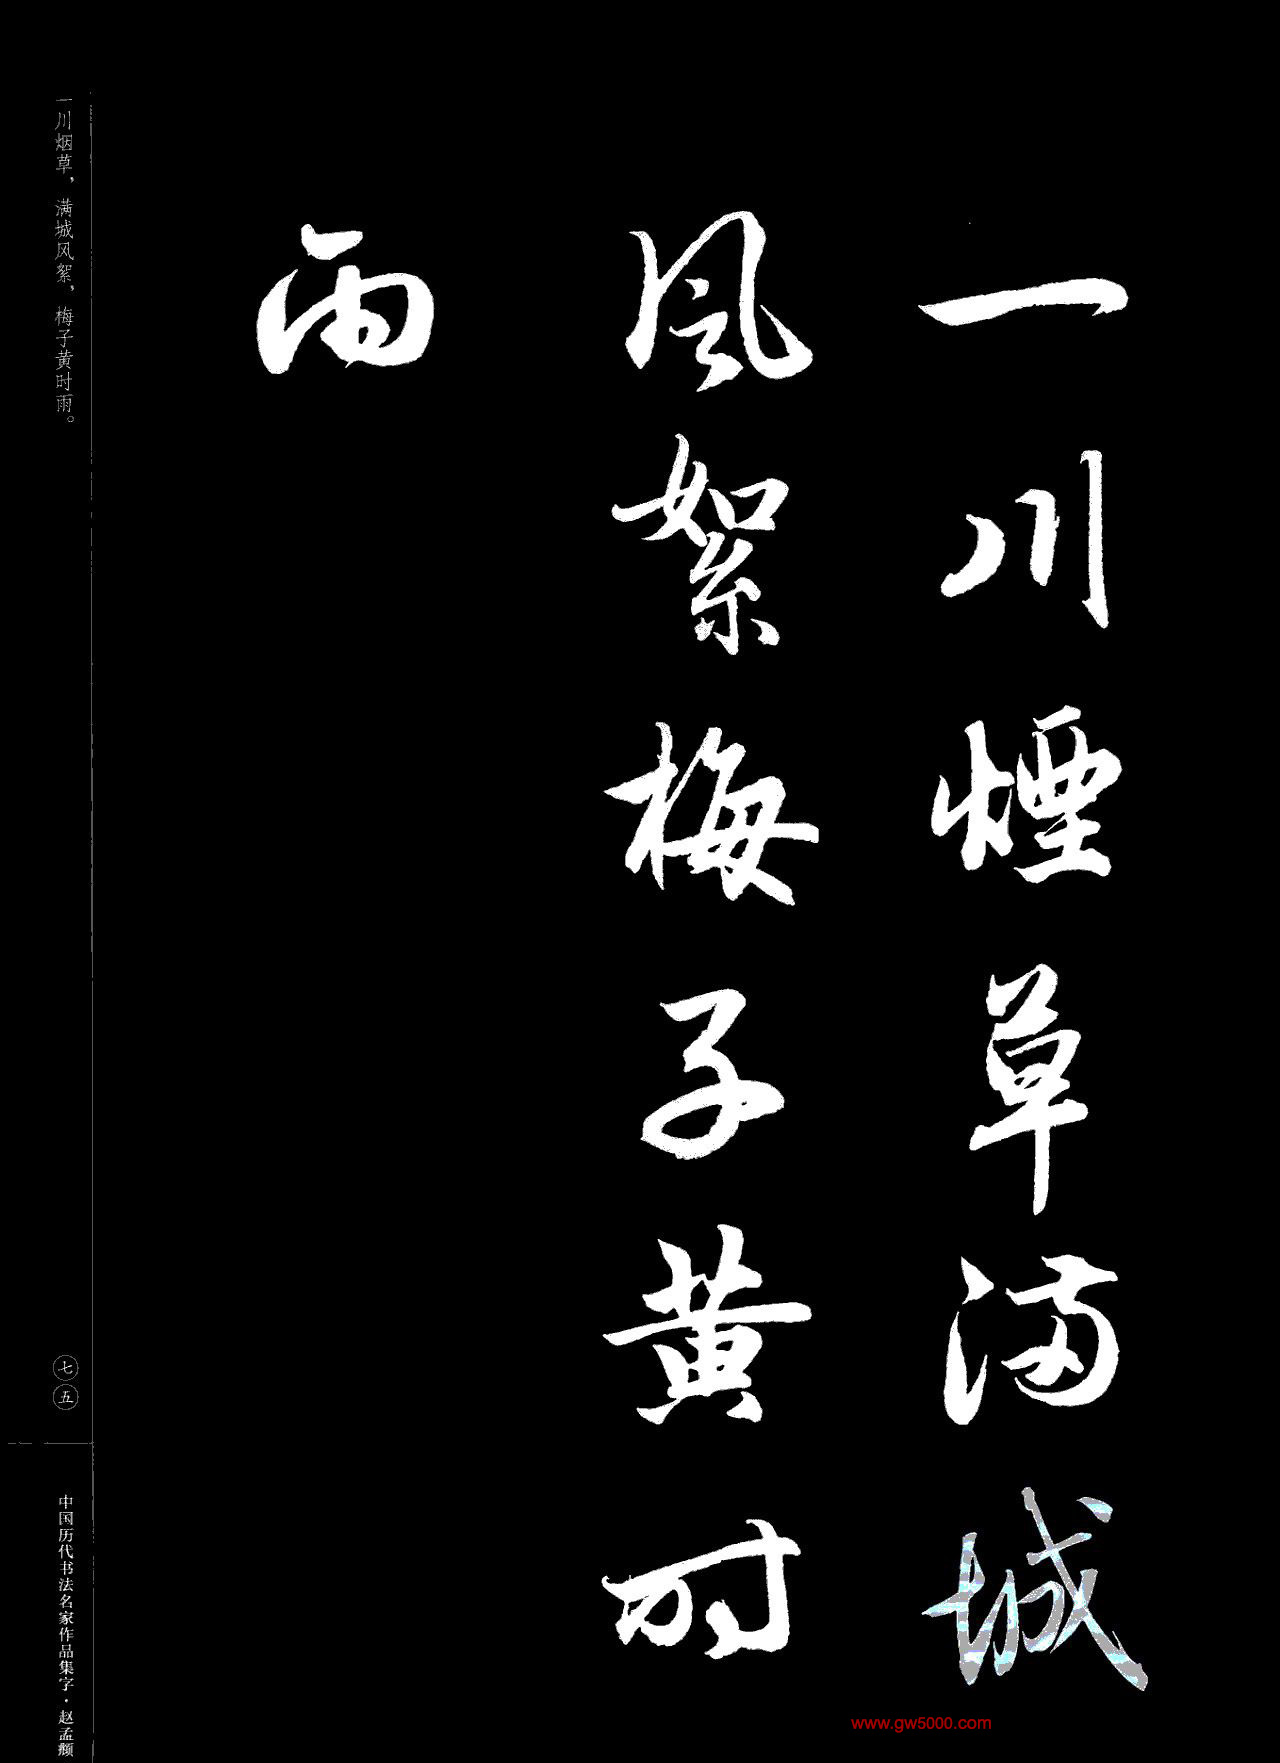 一川煙草满城
風絮梅子黄时
雨
一川烟草，满城风絮，梅子黄时雨。
七五
中国历代书法名家作品集字·赵孟頫
www.gw5000.com